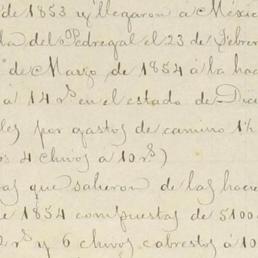 de 1853 y llegaron á Méxic
la del Pedregal el 23 de Febrer
de Marzo de 1854 á la hac
á 14 rs en el estado de Dic
les por gastos de camino 1½
os 4 chivos á 10 rs)
as que salieron de las hacie
e 1854 compuestas de 5100
2 rs y 6 chivos cabrestos á 10